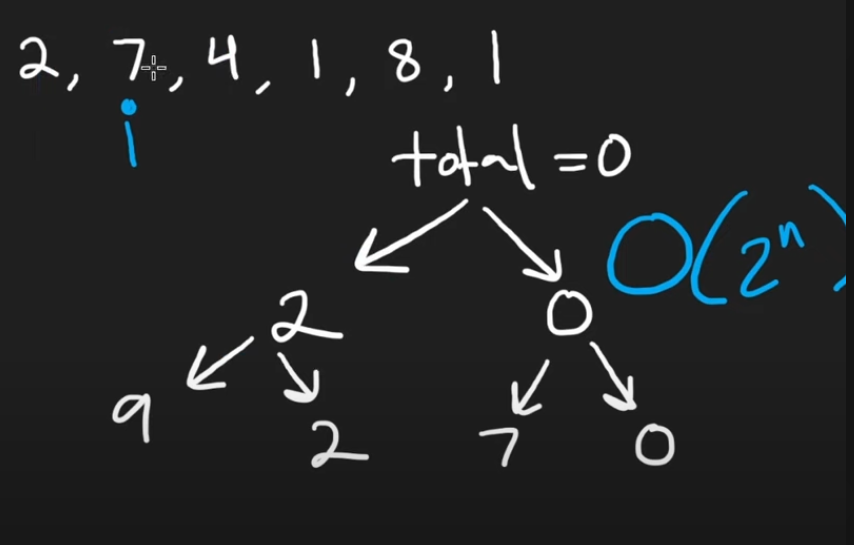 2, 7, 4, 1, 8, 1
i
total = 0
O(2ⁿ)
2 0
9 2 7 0